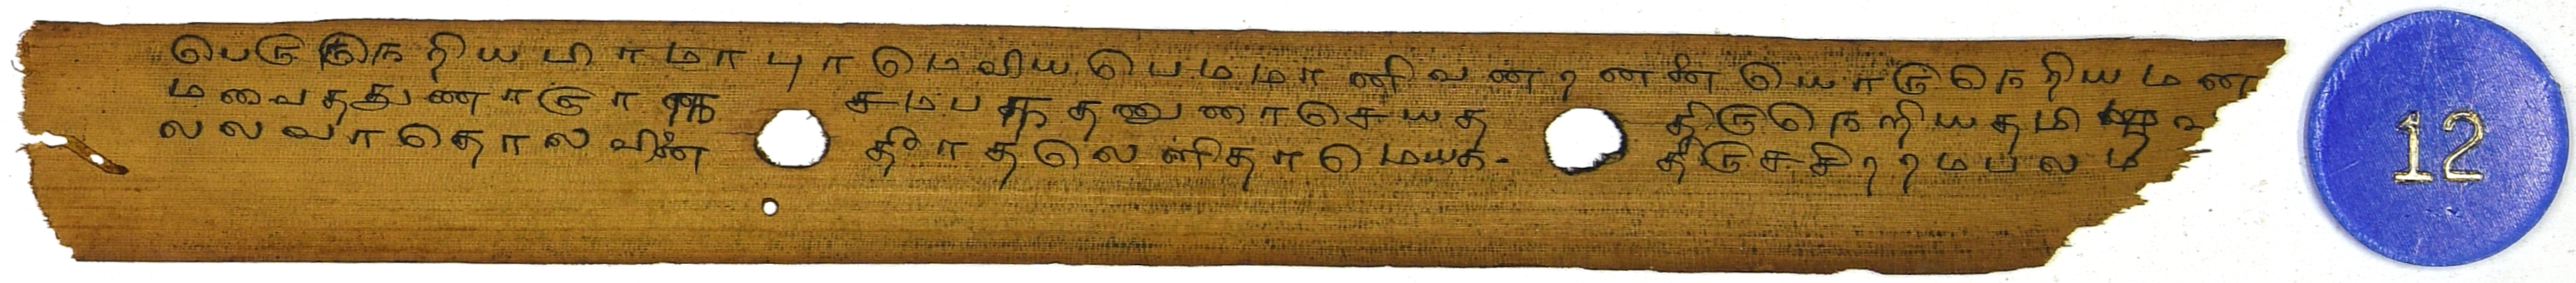 பெருநெறியபிரமாபுரமெவியபெமமானிவனறனனை யொருநெறியமன
மவைததுணரஞான சமபநதனுரைசெயத திருநெறியதமிழவ
லலவரதொலவினை தீரதலெளிதாமெ திருசசிறறமபலம
12